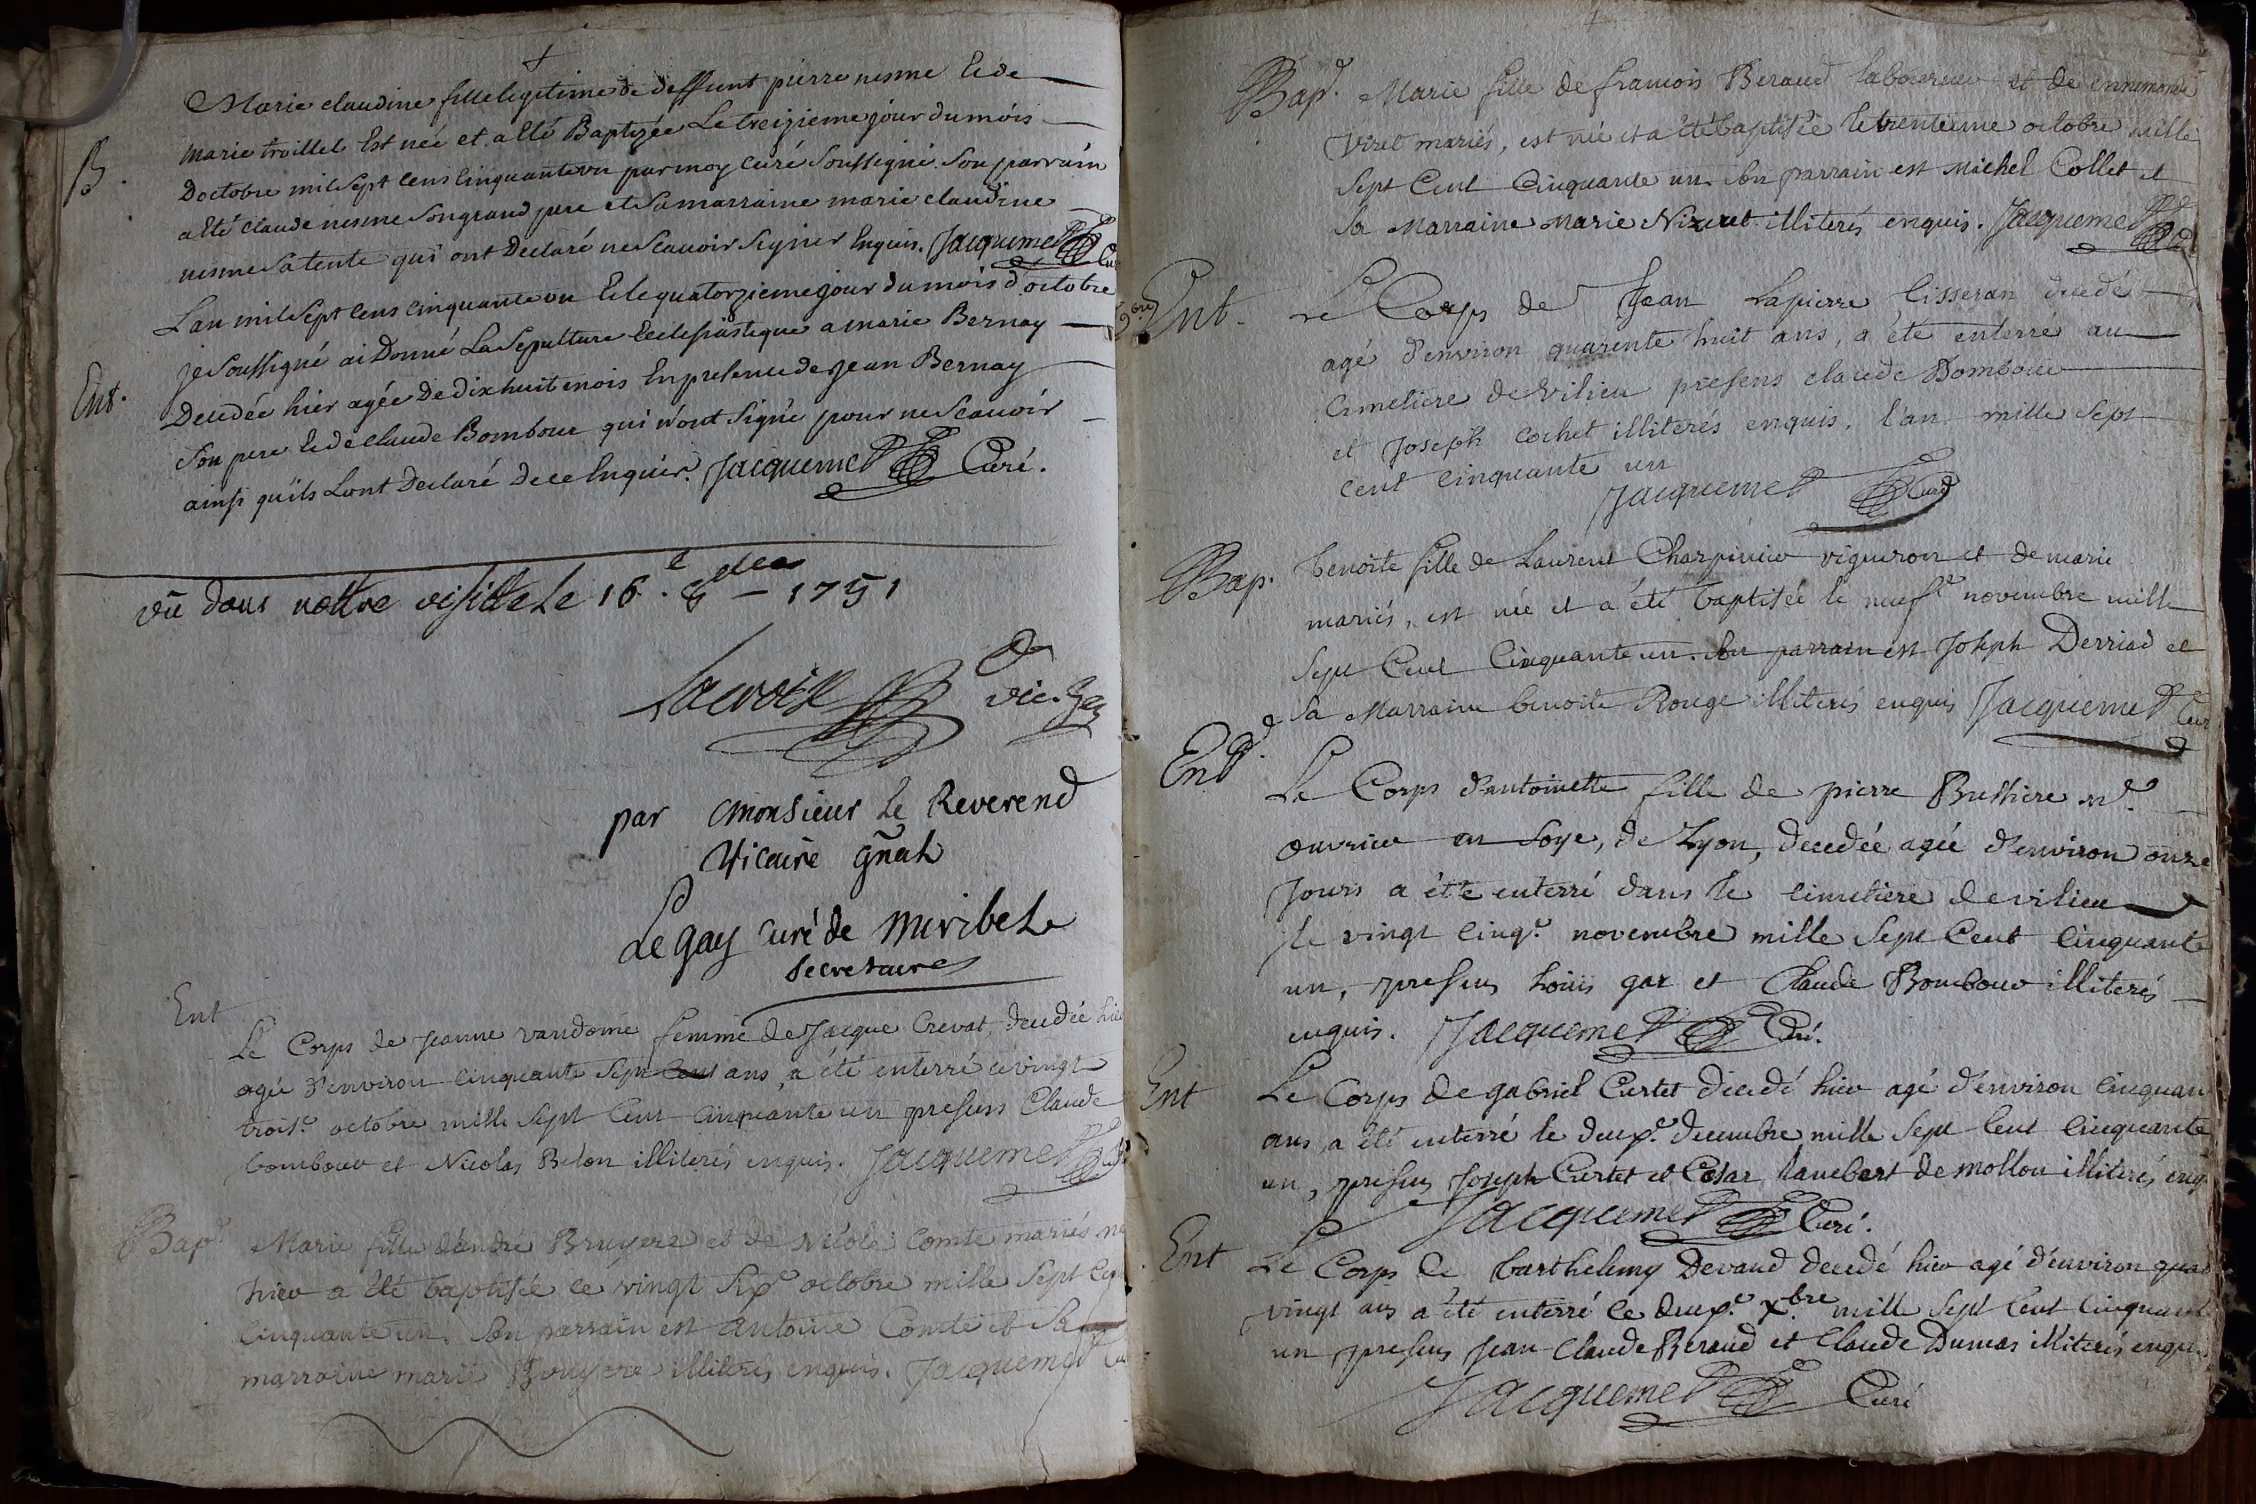 Marie claudine fille legitime de deffunt pierre nesme et de
marie troillet Est née et a Eté Baptizée Le treizieme jour du mois
B. Doctobre mil Sept Cens Cinquante un par moy Curé Soussigné. Son parrain
a Eté Claude nesme Son grand pere et Sa marraine marie claudine
nesme Sa tente qui ont Declaré ne Scavoir Signer Enquis. Jacquemet Curé
L'an mil Sept Cens Cinquante un Et le quatorzieme jour du mois d'octobre
je Soussigné ai Donné La Sepulture Ecclesiastique a marie Bernay
Ent. Decedée hier agée De dix huit mois En presence de Jean Bernay
Son pere Et de Claude Bombour qui n'ont Signé pour ne Scavoir
ainsi qu'ils L'ont Declaré De ce Enquis. Jacquemet Curé.
vû dans nottre visitte Le 16.e 8 1751
Lacroix vic. gen
par Monsieur Le Reverend
Vicaire gñal
Le gay Curé de Miribel
Secretaire
Ent
Le Corps de Jeanne vandome femme de Jacque Crevat, decedée hier
agée d'environ cinquante Sept ans, a été enterré ce vingt
trois.e octobre mille Sept Cent Cinquante un presens Claude
bombour et Nicolas Belon illiterés enquis. Jacquemet Curé
Bap. Marie fille d'andré Bruyere et de Nicole Comte mariés
hier a été baptisée ce vingt Six.e octobre mille Sept Cent
Cinquante un. Son parrain est Antoine Comte et Sa
marraine marie Bruyere illiterés enquis. Jacquemet
Bap. Marie fille de francois Beraud laboureur et de ennemonde
Viret mariés, est née et a été baptisée le trentieme octobre mille
Sept Cent Cinquante un. Son parrain est Michel Collet et
Sa Marraine Marie Nizeret illiterés enquis. Jacquemet Curé
9bre
Ent. Le Corps de Jean Lapierre tisseran decedé
agé d'environ quarente huit ans, a été enterré au
Cimetiere de Vilieu presens claude Bombour
et Joseph Cochet illiterés enquis. l'an mille Sept
cent cinquante un
Jacquemet Curé
Bap. benoite fille de Laurent Charpinier vigneron et de marie
mariés, est née et a été baptisée le neuf.e novembre mille
Sept Cent Cinquante un. Son parrain est Joseph Derriad et
Sa Marraine benoite Rouge illiterés enquis Jacquemet Curé
Ent. Le Corps d'antoinette fille de pierre Bussiere
ouvrier en Soye, de Lyon, decedée agée d'environ onze
Jours a été enterré dans le Cimetiere de vilieu
le vingt Cinq.e novembre mille Sept Cent Cinquante
un, presens Loüis gar et Claude Bombour illiterés
enquis. Jacquemet Curé.
Ent Le Corps de gabriel Curtet decedé hier agé d'environ Cinquan
ans, a été enterré le deux.e decembre mille Sept Cent Cinquante
un, presens Joseph Curtet et Cesar Lambert de mollon illiterés enq
Jacquemet Curé.
Ent Le Corps de barthelemy Devaud decedé hier agé d'environ quat
vingt ans a été enterré ce deux.e Xbre mille Sept Cent Cinquant
un presens Jean Claude Beraud et Claude Dumas illiterés enqu
Jacquemet Curé